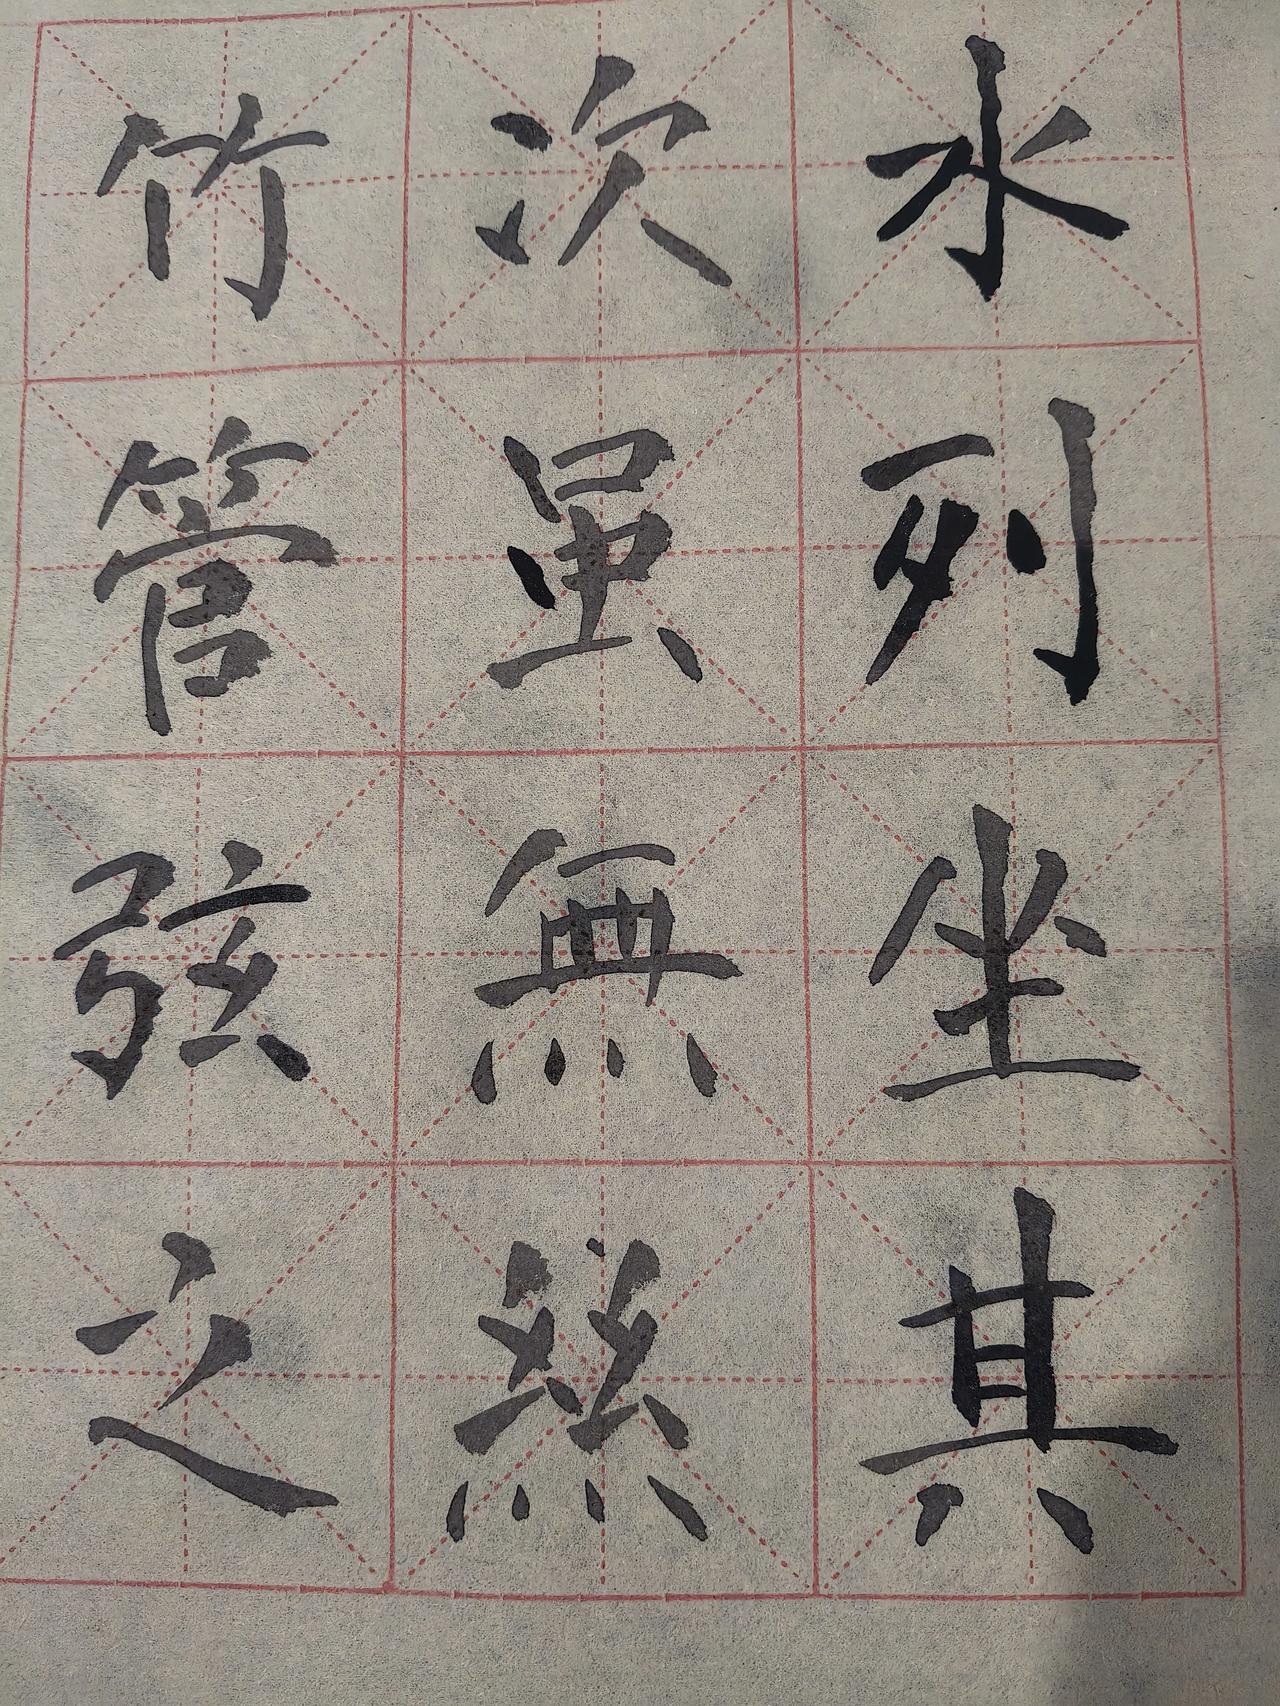 水列坐其
次虽無絲
竹管弦之